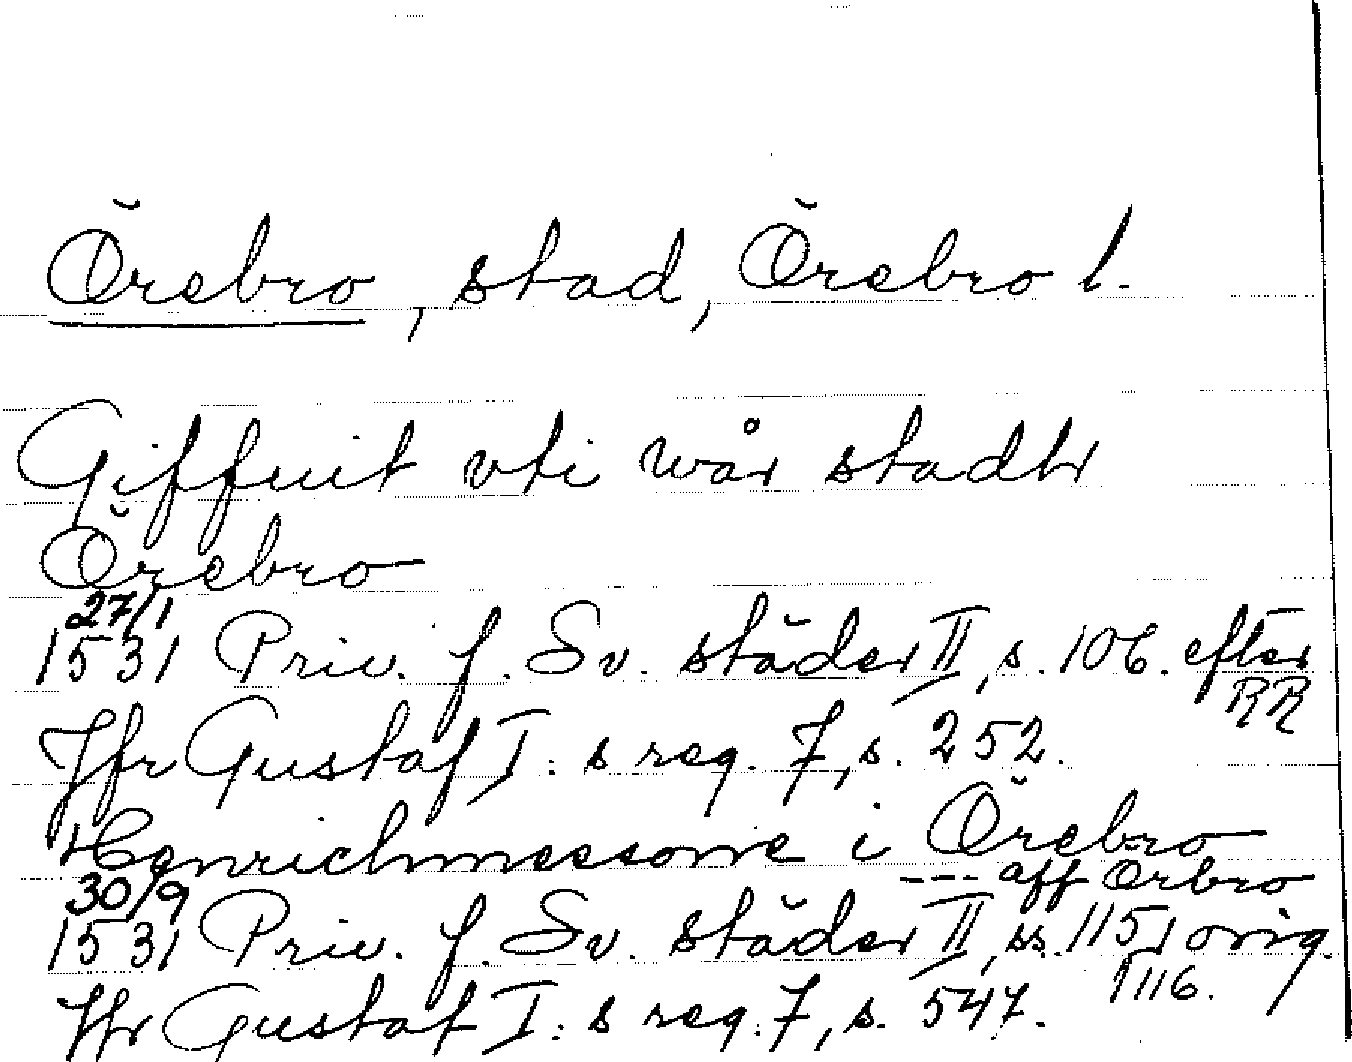 Örebro, stad, Örebro l.
Giffuit vti wår stadh
Örebro
27/1
1531 Priv. f. Sv. städer II, s. 106. efter
RR
Jfr Gustaf I:s reg. 7, s. 252.
Henrichmessone i Örebro
--- aff Örbro
30/9
1531 Priv. f. Sv. städer II, ss. 115, orig.
116.
Jfr Gustaf I:s reg. 7, s. 547.